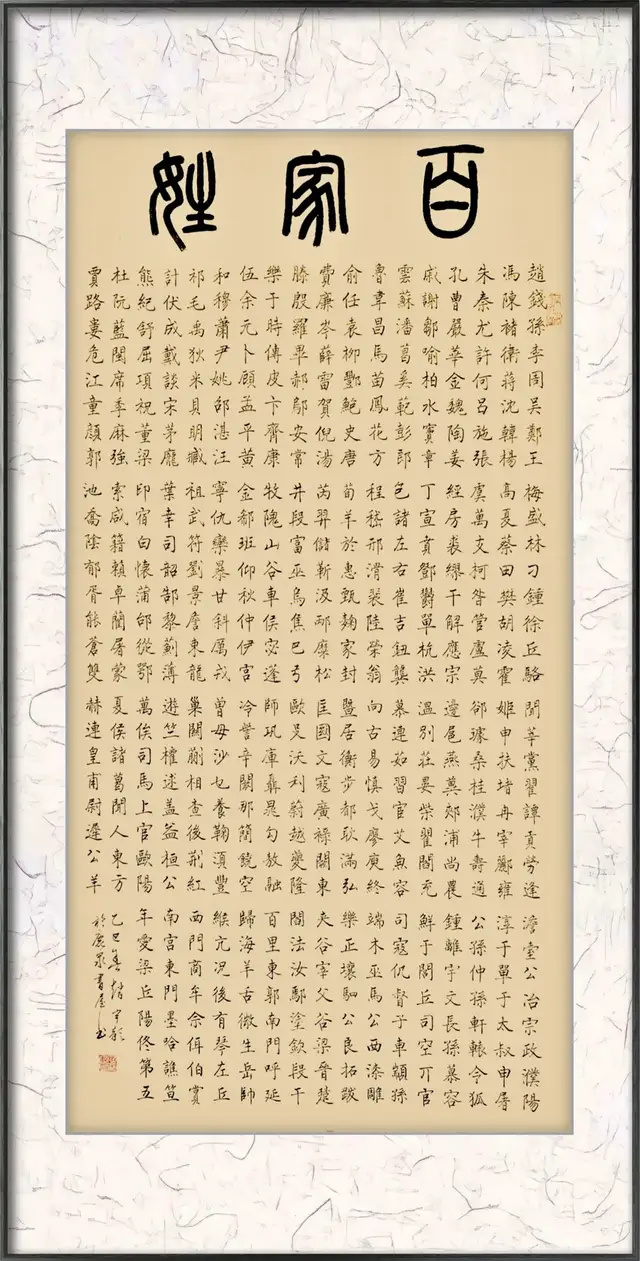 百家姓
趙錢孫李周吳鄭王
馮陳褚衛蔣沈韓楊
朱秦尤許何呂施張
孔曹嚴華金魏陶姜
戚謝鄒喻柏水竇章
雲蘇潘葛奚範彭郎
魯韋昌馬苗鳳花方
俞任袁柳酆鮑史唐
費廉岑薛雷賀倪湯
滕殷羅畢郝鄔安常
樂于時傅皮卞齊康
伍余元卜顧孟平黃
和穆蕭尹姚邵湛汪
祁毛禹狄米貝明臧
計伏成戴談宋茅龐
熊紀舒屈項祝董梁
杜阮藍閔席季麻強
賈路婁危江童顏郭
梅盛林刁鍾徐丘駱
高夏蔡田樊胡凌霍
虞萬支柯昝管盧莫
經房裘繆干解應宗
丁宣賁鄧鬱單杭洪
包諸左右崔吉鈕龔
程嵇邢滑裴陸榮翁
荀羊於惠甄麴家封
芮羿儲靳汲邴糜松
井段富巫烏焦巴弓
牧隗山谷車侯宓蓬
金郗班仰秋仲伊宮
寧仇欒暴甘斜厲戎
祖武符劉景詹束龍
葉幸司韶郜黎薊薄
印宿白懷蒲邰從鄂
索咸籍賴卓藺屠蒙
池喬陰郁胥能蒼雙
聞莘黨翟譚貢勞逄
姬申扶堵冉宰酈雍
郤璩桑桂濮牛壽通
邊扈燕冀郟浦尚農
溫別莊晏柴瞿閻充
慕連茹習宦艾魚容
向古易慎戈廖庾終
暨居衡步都耿滿弘
匡國文寇廣祿闕東
歐殳沃利蔚越夔隆
師巩庫聶晁勾敖融
冷訾辛闞那簡饒空
曾毋沙乜養鞠須豐
巢關蒯相查後荊紅
遊竺權逑蓋益桓公
萬俟司馬上官歐陽
夏侯諸葛聞人東方
赫連皇甫尉遲公羊
澹臺公冶宗政濮陽
淳于單于太叔申屠
公孫仲孫軒轅令狐
鍾離宇文長孫慕容
鮮于閭丘司空亓官
司寇仉督子車顓孫
端木巫馬公西漆雕
樂正壤駟公良拓跋
夾谷宰父谷梁晉楚
閆法汝鄢塗欽段干
百里東郭南門呼延
歸海羊舌微生岳帥
緱亢況後有琴左丘
西門商牟佘佴伯賞
南宮東門墨哈譙笪
年愛梁丘陽佟第五
乙巳春
書屋